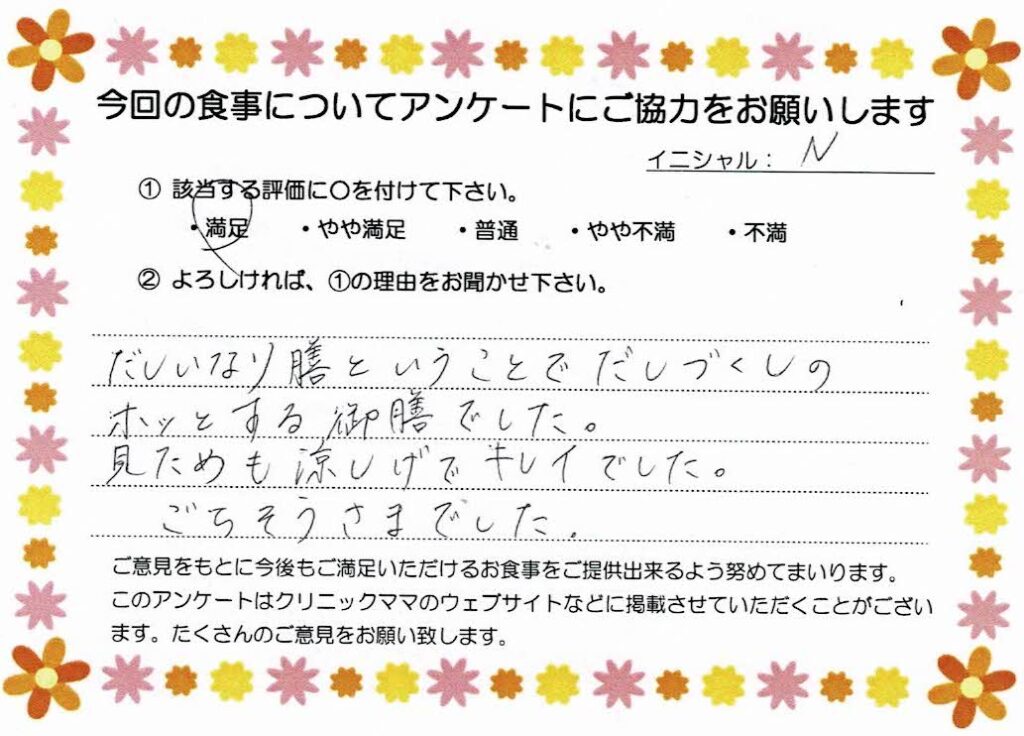 今回の食事についてアンケートにご協力をお願いします
イニシャル： N
① 該当する評価に〇を付けて下さい。
・満足 ・やや満足 ・普通 ・やや不満 ・不満
② よろしければ、①の理由をお聞かせ下さい。
だしいなり膳ということでだしづくしの
ホッとする御膳でした。
見ためも涼しげでキレイでした。
ごちそうさまでした。
ご意見をもとに今後もご満足いただけるお食事をご提供出来るよう努めてまいります。
このアンケートはクリニックママのウェブサイトなどに掲載させていただくことがござい
ます。たくさんのご意見をお願い致します。